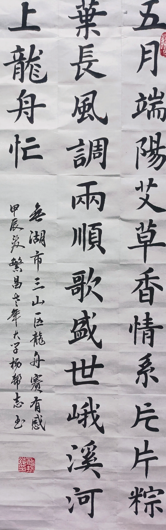 五月端陽艾草香情系片片粽
葉長風調兩順歌盛世峨溪河
上龍舟忙
蕪湖市三山區龍舟賽有感
甲辰 繁昌老年大學楊幫志書